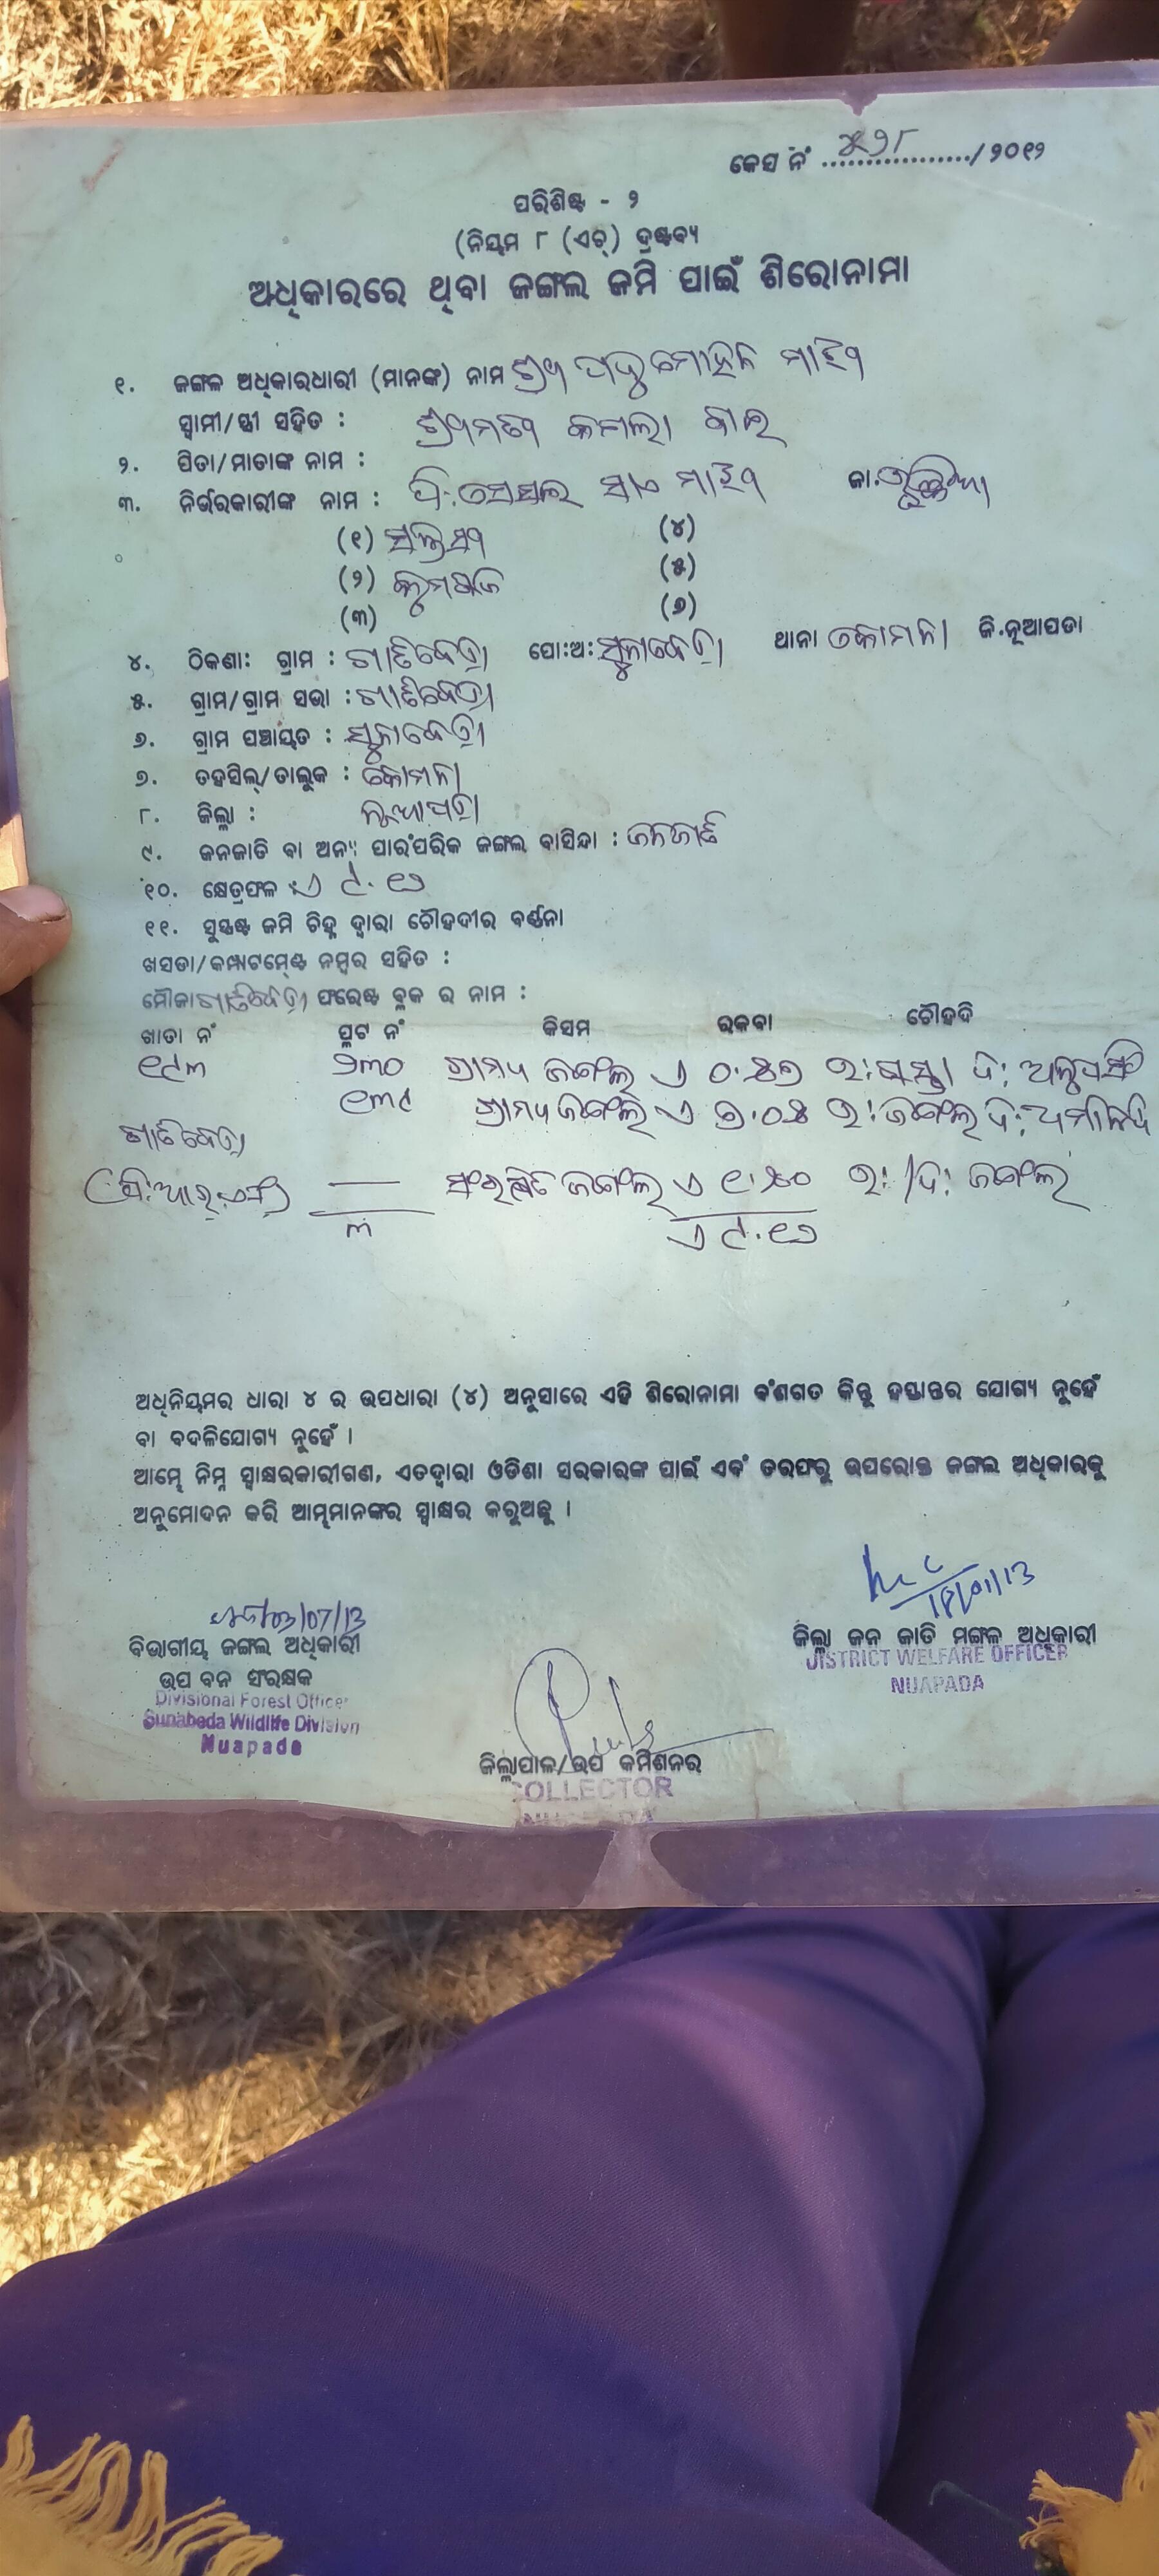 କେସ ନଂ ................../ ୨୦୧୨
ପରିଶିଷ୍ଟ - ୨
(ନିୟମ ୮ (ଏଚ୍) ଦ୍ରଷ୍ଟବ୍ୟ
ଅଧିକାରରେ ଥିବା ଜଙ୍ଗଲ ଜମି ପାଇଁ ଶିରୋନାମା
୧. ଜଙ୍ଗଲ ଅଧିକାରଧାରୀ (ମାନଙ୍କ) ନାମ ଶ୍ରୀ ମୋହନ ମାଝୀ
ସ୍ୱାମୀ/ସ୍ତ୍ରୀ ସହିତ : ଶ୍ରୀମତୀ କମଳା ବାଇ
୨. ପିତା/ମାତାଙ୍କ ନାମ :
୩. ନିର୍ଭରକାରୀଙ୍କ ନାମ : ପି. ସାଏ ମାଝୀ ଜା.
(୧) (୪)
(୨) (୫)
(୩) (୬)
୪. ଠିକଣା: ଗ୍ରାମ : ପୋ:ଅ: ସୁନାବେଡ଼ା ଥାନା କୋମନା ଜି.ନୂଆପଡା
୫. ଗ୍ରାମ/ଗ୍ରାମ ସଭା :
୬. ଗ୍ରାମ ପଞ୍ଚାୟତ : ସୁନାବେଡ଼ା
୭. ତହସିଲ୍/ତାଲୁକ : କୋମନା
୮. ଜିଲ୍ଲା : ନୂଆପଡ଼ା
୯. ଜନଜାତି ବା ଅନ୍ୟ ପାରଂପରିକ ଜଙ୍ଗଲ ବାସିନ୍ଦା : ଜନଜାତି
୧୦. କ୍ଷେତ୍ରଫଳ : ଏ ୯.୧୭
୧୧. ସୁସ୍ପଷ୍ଟ ଜମି ଚିହ୍ନ ଦ୍ୱାରା ଚୌହଦୀର ବର୍ଣ୍ଣନା
ଖସଡା/କମ୍ପାଟମେଣ୍ଟ ନମ୍ବର ସହିତ :
ମୌଜା ଫରେଷ୍ଟ ବ୍ଲକ ର ନାମ :
ଖାତା ନଂ ପ୍ଲଟ ନଂ କିସମ ରକବା ଚୌହଦି
୧୯୩ ୨୩୦ ଗ୍ରାମ୍ୟ ଜଙ୍ଗଲ ଏ ଉ: ରାସ୍ତା ଦ:
୧୩୯ ଗ୍ରାମ୍ୟ ଜଙ୍ଗଲ ଏ ଉ: ଜଙ୍ଗଲ ଦ:
(ପି.ଆର.ଏଫ) — ସଂରକ୍ଷିତ ଜଙ୍ଗଲ ଏ ଉ:/ଦ: ଜଙ୍ଗଲ
୩ ଏ ୯.୧୭
ଅଧିନିୟମର ଧାରା ୪ ର ଉପଧାରା (୪) ଅନୁସାରେ ଏହି ଶିରୋନାମା ବଂଶଗତ କିନ୍ତୁ ହସ୍ତାନ୍ତର ଯୋଗ୍ୟ ନୁହେଁ
ବା ବଦଳିଯୋଗ୍ୟ ନୁହେଁ ।
ଆମ୍ଭେ ନିମ୍ନ ସ୍ୱାକ୍ଷରକାରୀଗଣ, ଏତଦ୍ୱାରା ଓଡିଶା ସରକାରଙ୍କ ପାଇଁ ଏବଂ ତରଫରୁ ଉପରୋକ୍ତ ଜଙ୍ଗଲ ଅଧିକାରକୁ
ଅନୁମୋଦନ କରି ଆମ୍ଭମାନଙ୍କର ସ୍ୱାକ୍ଷର କରୁଅଛୁ ।
18/01/13
ଜିଲ୍ଲା ଜନ ଜାତି ମଙ୍ଗଳ ଅଧିକାରୀ
DISTRICT WELFARE OFFICER
NUAPADA
03/07/13
ବିଭାଗୀୟ ଜଙ୍ଗଲ ଅଧିକାରୀ
ଉପ ବନ ସଂରକ୍ଷକ
Divisional Forest Officer
Sunabeda Wildlife Division
Nuapada
ଜିଲ୍ଲାପାଳ/ଉପ କମିଶନର
COLLECTOR
NUAPADA